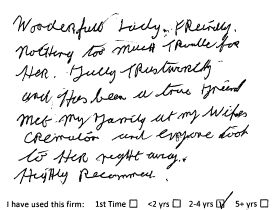 Wonderfull Lady. Freindly.
Nothing too much Trouble for
Her. Fully Trustworthy
and Has been a true friend
Met my Family at my Wifes
Cremation and everyone took
to Her right away.
Highly Recommend.
I have used this firm: 1st Time ☐ <2 yrs ☐ 2-4 yrs ☑ 5+ yrs ☐